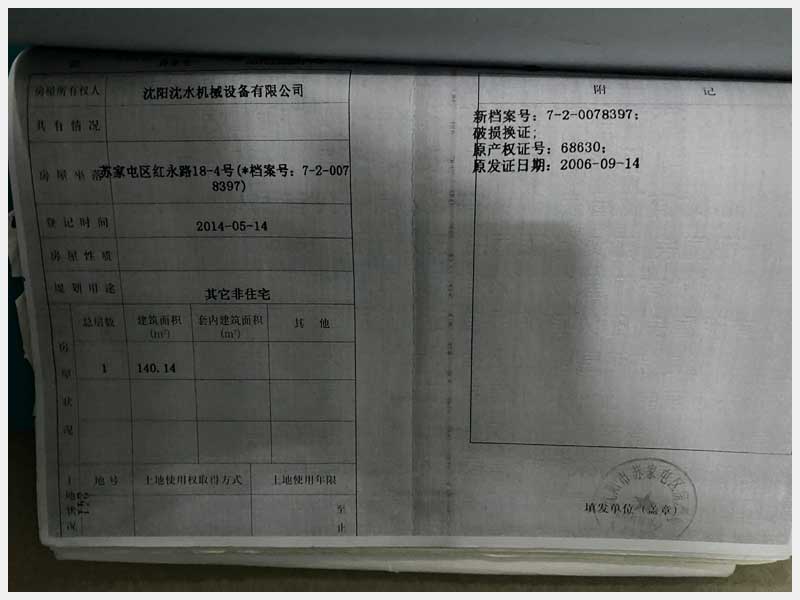 房屋所有权人 沈阳沈水机械设备有限公司
共有情况
房屋坐落 苏家屯区红永路18-4号(*档案号：7-2-007
8397)
登记时间 2014-05-14
房屋性质
规划用途 其它非住宅
房屋状况
总层数 建筑面积 套内建筑面积 其 他
(m²) (m²)
1 140.14
土地状况
地号 土地使用权取得方式 土地使用年限
至
止
附 记
新档案号：7-2-0078397；
破损换证；
原产权证号：68630；
原发证日期：2006-09-14
市苏家屯区房
填发单位（盖章）